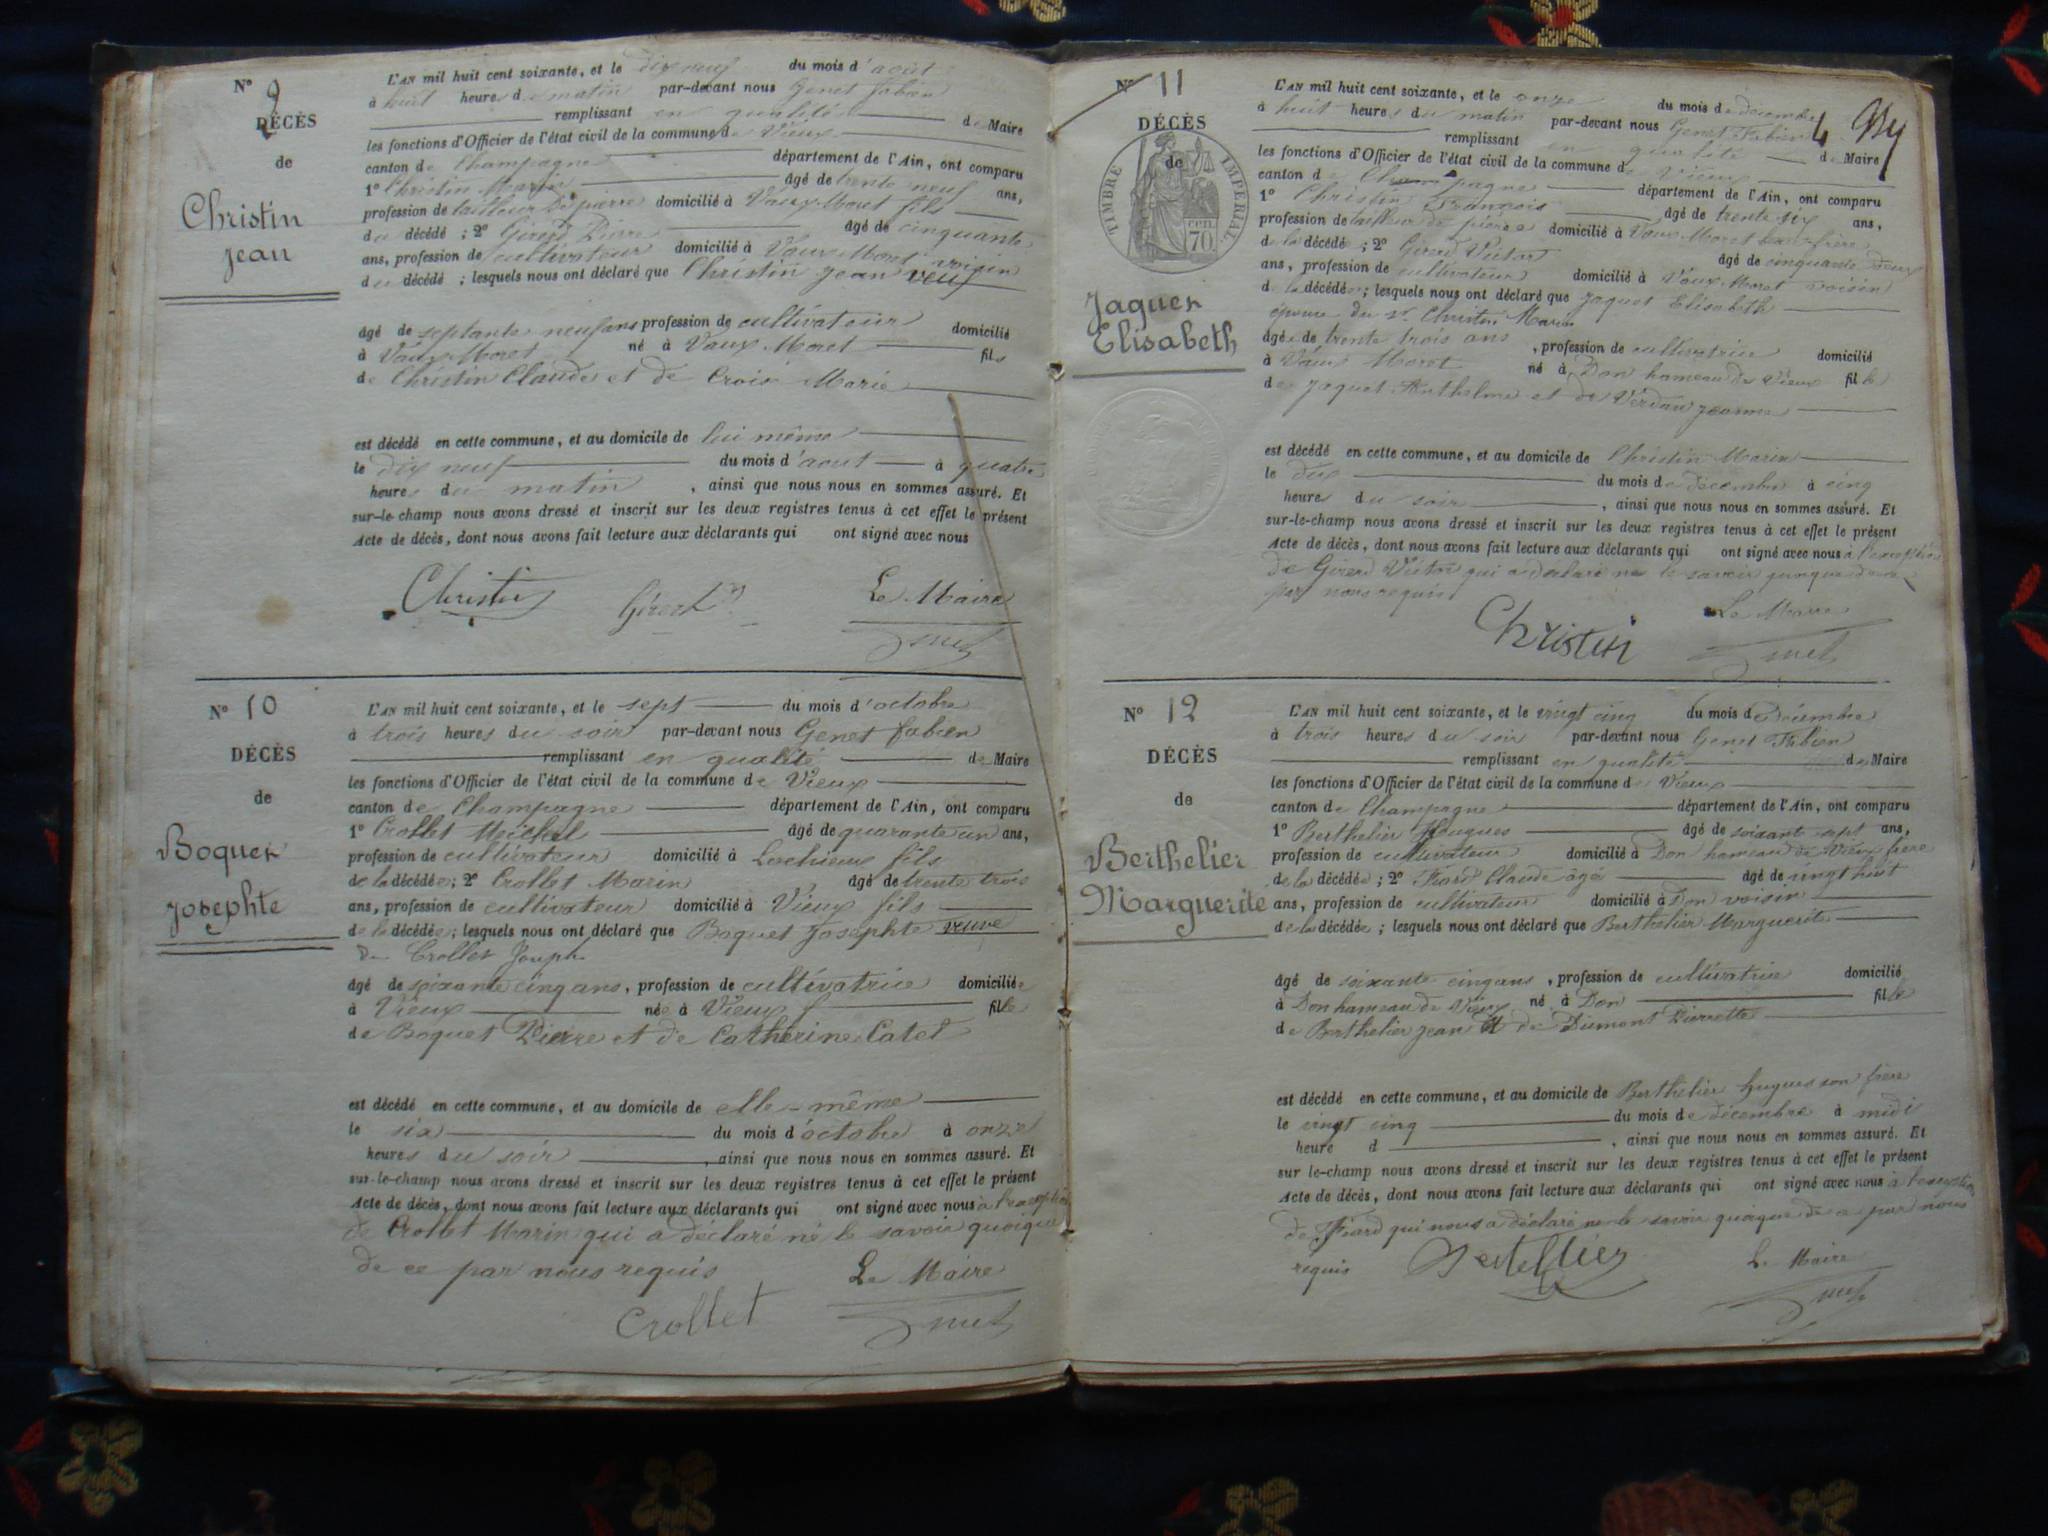 N° 9
DÉCÈS
de
Christin
Jean
L'AN mil huit cent soixante, et le dix neuf du mois d'août
à huit heures du matin par-devant nous Genet fabien
remplissant en qualité de Maire
les fonctions d'Officier de l'état civil de la commune de Vieux
canton de Champagne département de l'Ain, ont comparu
1° Christin Marin âgé de trente neuf ans,
profession de tailleur de pierre domicilié à Vaux-Moret fils
du décédé ; 2° Girerd Pierre âgé de cinquante
ans, profession de cultivateur domicilié à Vaux Moret voisin
du décédé ; lesquels nous ont déclaré que Christin Jean veuf
âgé de septante neuf ans profession de cultivateur domicilié
à Vaux-Moret né à Vaux-Moret fils
de Christin Claude et de Marie
est décédé en cette commune, et au domicile de lui même
le dix neuf du mois d'aout à quatre
heures du matin , ainsi que nous nous en sommes assuré. Et
sur-le-champ nous avons dressé et inscrit sur les deux registres tenus à cet effet le présent
Acte de décès, dont nous avons fait lecture aux déclarants qui ont signé avec nous
Christin Girerd Le Maire
Genet
N° 10
DÉCÈS
de
Boquet
Josephte
L'AN mil huit cent soixante, et le sept du mois d'octobre
à trois heures du soir par-devant nous Genet fabien
remplissant en qualité de Maire
les fonctions d'Officier de l'état civil de la commune de Vieux
canton de Champagne département de l'Ain, ont comparu
1° Crollet Michel âgé de quarante un ans,
profession de cultivateur domicilié à fils
de la décédée ; 2° Crollet Marin âgé de trente trois
ans, profession de cultivateur domicilié à Vieux fils
de la décédée ; lesquels nous ont déclaré que Boquet Josephte veuve
de Crollet Joseph
âgé de soixante cinq ans, profession de cultivatrice domiciliée
à Vieux née à Vieux fille
de Boquet Pierre et de Catherine Catel
est décédé en cette commune, et au domicile de elle-même
le six du mois d'octobre à onze
heures du soir , ainsi que nous nous en sommes assuré. Et
sur-le-champ nous avons dressé et inscrit sur les deux registres tenus à cet effet le présent
Acte de décès, dont nous avons fait lecture aux déclarants qui ont signé avec nous à l'exception
de Crollet Marin qui a déclaré ne le savoir quoique
de ce par nous requis Le Maire
Crollet Genet
N° 11
DÉCÈS
de
TIMBRE IMPÉRIAL
70 cen
Jaquet
Elisabeth
L'AN mil huit cent soixante, et le onze du mois de décembre
à huit heures du matin par-devant nous Genet Fabien
remplissant en qualité de Maire
les fonctions d'Officier de l'état civil de la commune de Vieux
canton de Champagne département de l'Ain, ont comparu
1° Christin François âgé de trente six ans,
profession de tailleur de pierre domicilié à Vaux-Moret beau-frère
de la décédé ; 2° Girerd Victor âgé de cinquante deux
ans, profession de cultivateur domicilié à Vaux Moret voisin
de la décédée ; lesquels nous ont déclaré que Jaquet Elisabeth
épouse du Christin Marin
âgée de trente trois ans , profession de cultivatrice domicilié
à Vaux Moret né à Don hameau de Vieux fille
de Jaquet Anthelme et de Jeanne
est décédé en cette commune, et au domicile de Christin Marin
le dix du mois de décembre à cinq
heures du soir , ainsi que nous nous en sommes assuré. Et
sur-le-champ nous avons dressé et inscrit sur les deux registres tenus à cet effet le présent
Acte de décès, dont nous avons fait lecture aux déclarants qui ont signé avec nous à l'exception
de Girerd Victor qui a déclaré ne le savoir
par nous requis Le Maire
Christin Genet
N° 12
DÉCÈS
de
Berthelier
Marguerite
L'AN mil huit cent soixante, et le vingt cinq du mois de Décembre
à trois heures du soir par-devant nous Genet Fabien
remplissant en qualité de Maire
les fonctions d'Officier de l'état civil de la commune de Vieux
canton de Champagne département de l'Ain, ont comparu
1° Berthelier Hugues âgé de soixante sept ans,
profession de cultivateur domicilié à Don hameau de Vieux frère
de la décédée ; 2° Fiard Claude âgé âgé de vingt huit
ans, profession de cultivateur domicilié à Don voisin
de la décédée ; lesquels nous ont déclaré que Berthelier Marguerite
âgé de soixante cinq ans , profession de cultivatrice domicilié
à Don hameau de Vieux né à Don fille
de Berthelier Jean et de Dumont Pierrette
est décédé en cette commune, et au domicile de Berthelier Hugues son frère
le vingt cinq du mois de décembre à midi
heure d , ainsi que nous nous en sommes assuré. Et
sur le-champ nous avons dressé et inscrit sur les deux registres tenus à cet effet le présent
Acte de décès, dont nous avons fait lecture aux déclarants qui ont signé avec nous à l'exception
de Fiard qui nous a déclaré ne le savoir quoique de ce par nous
requis Le Maire
Genet